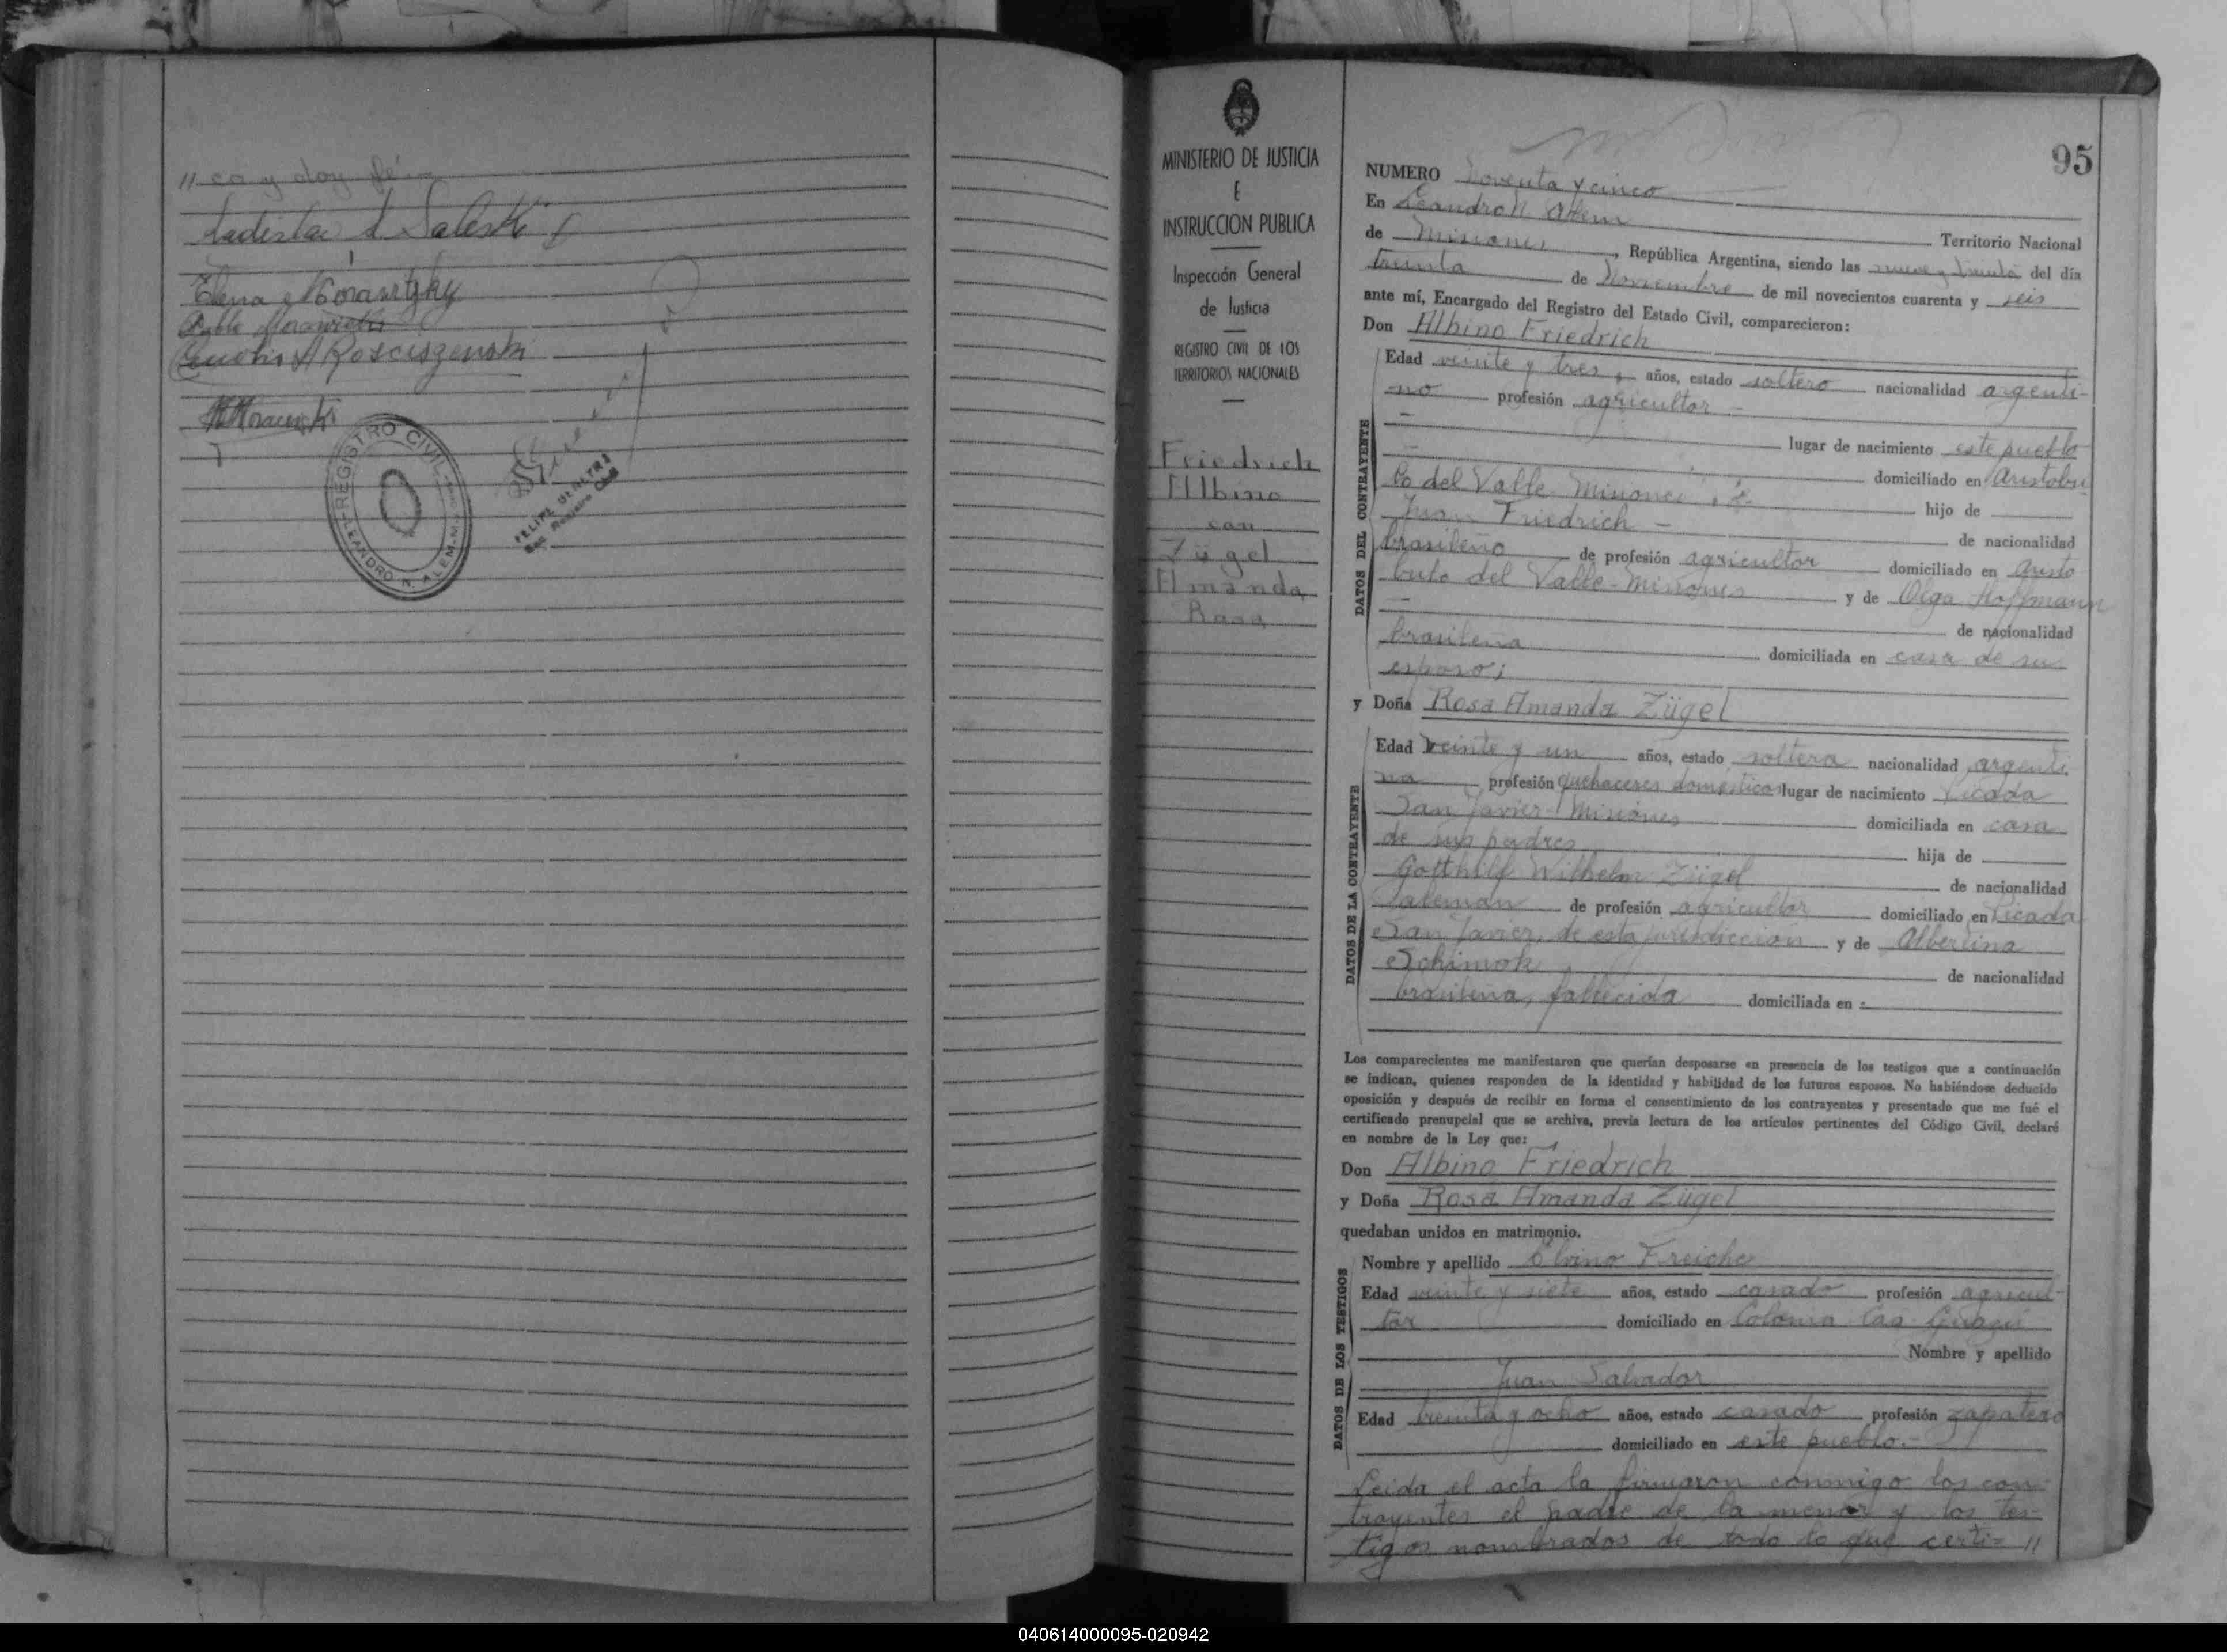 // co y doy fé.
Ladislao A Saleski
Elena Morawitzky
Pablo
Rosciszewski
REGISTRO CIVIL
LEANDRO N. ALEM - MNES.
Registro Civil
MINISTERIO DE JUSTICIA
E
INSTRUCCION PUBLICA
Inspección General
de Justicia
REGISTRO CIVIL DE LOS
TERRITORIOS NACIONALES
Friedrich
Albino
con
Zügel
Amanda
Rosa
95
NUMERO Noventa y cinco
En Leandro N. Alem
de Misiones Territorio Nacional
, República Argentina, siendo las nueve y treinta del día
treinta de Noviembre de mil novecientos cuarenta y seis
ante mí, Encargado del Registro del Estado Civil, comparecieron:
Don Albino Friedrich
DATOS DEL CONTRAYENTE
Edad veinte y tres, años, estado soltero nacionalidad argenti-
no profesión agricultor -
lugar de nacimiento este pueblo
domiciliado en Aristobu-
lo del Valle Misiones hijo de
Juan Friedrich - de nacionalidad
brasileño de profesión agricultor domiciliado en Aristo
bulo del Valle - Misiones y de Olga Hoffmann
de nacionalidad
brasileña domiciliada en casa de su
esposo;
y Doña Rosa Amanda Zügel
DATOS DE LA CONTRAYENTE
Edad veinte y un años, estado soltera nacionalidad argenti-
na profesión quehaceres domésticos lugar de nacimiento Picada
San Javier - Misiones domiciliada en casa
de sus padres hija de
Gotthilf Wilhelm Zügel de nacionalidad
aleman de profesión agricultor domiciliado en Picada
San Javier, de esta jurisdicción y de Albertina
Schimok de nacionalidad
brasileña, fallecida domiciliada en -
Los comparecientes me manifestaron que querían desposarse en presencia de los testigos que a continuación
se indican, quienes responden de la identidad y habilidad de los futuros esposos. No habiéndose deducido
oposición y después de recibir en forma el consentimiento de los contrayentes y presentado que me fué el
certificado prenupcial que se archiva, previa lectura de los artículos pertinentes del Código Civil, declaré
en nombre de la Ley que:
Don Albino Friedrich
y Doña Rosa Amanda Zügel
quedaban unidos en matrimonio.
DATOS DE LOS TESTIGOS
Nombre y apellido Elvino Freiche
Edad veinte y siete años, estado casado profesión agricul-
tor domiciliado en Colonia Caa-Guazú
Nombre y apellido
Juan Salvador
Edad treinta y ocho años, estado casado profesión zapatero
domiciliado en este pueblo.-
Leida el acta la firmaron conmigo los con-
trayentes el padre de la menor y los tes-
tigos nombrados de todo lo que certi- //
040614000095-020942